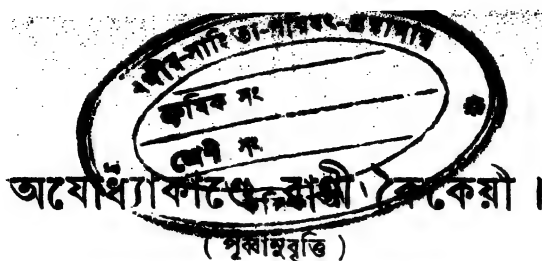 বঙ্গীয়-সাহিত্য-পরিষৎ-গ্রন্থাগার
ক্রমিক নং
শ্রেণী নং
অযোধ্যাকাণ্ডে রাণী কৈকেয়ী ।
( পূর্ব্বানুবৃত্তি )